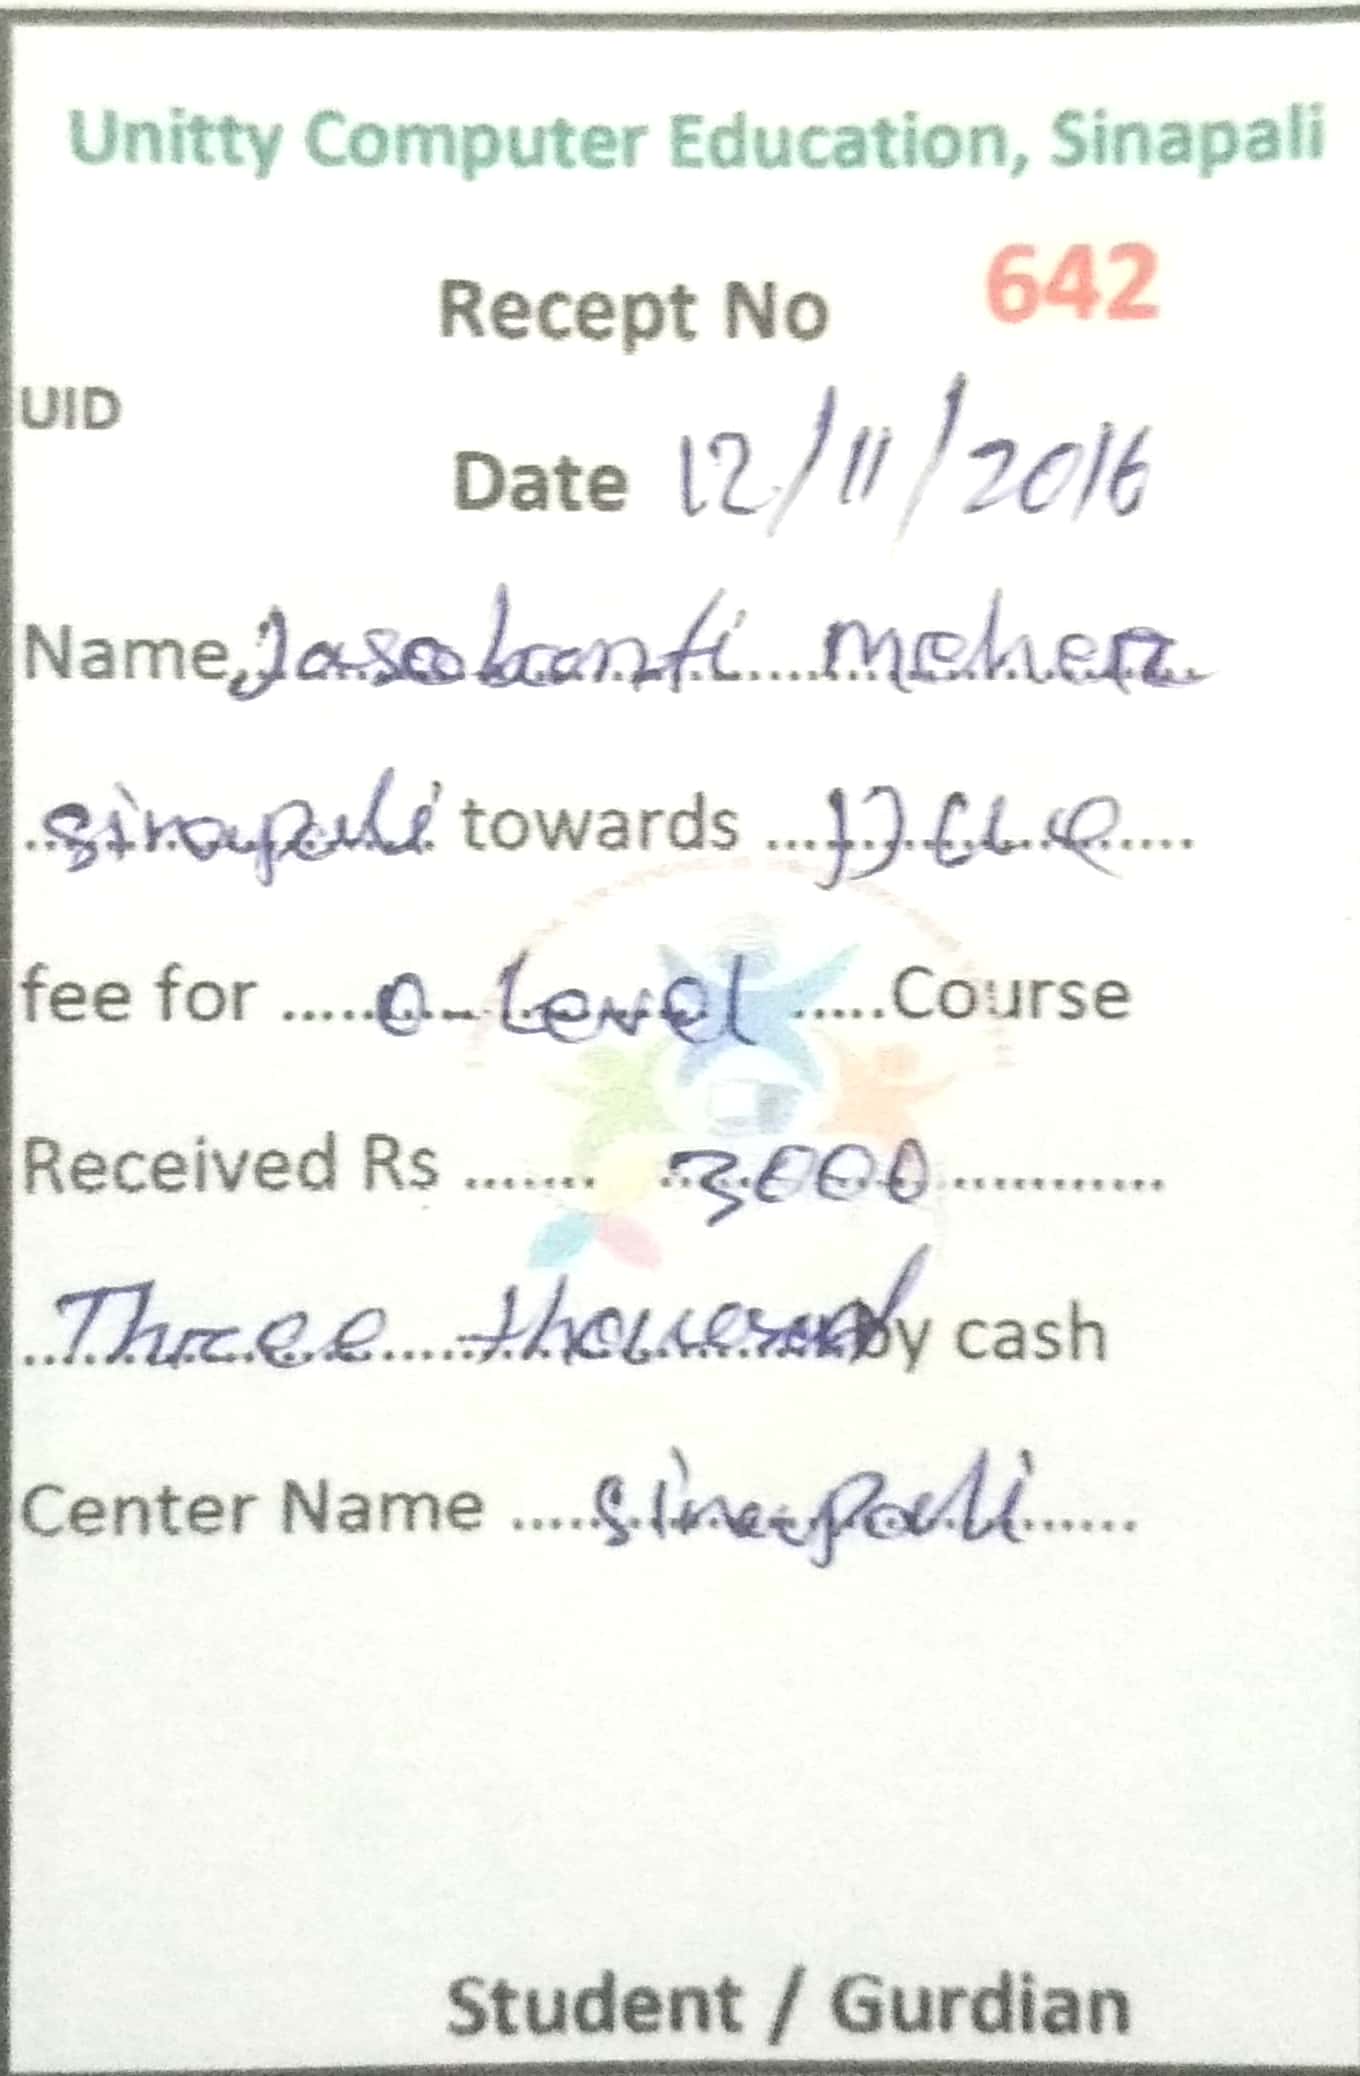 Unitty Computer Education, Sinapali
Recept No 642
UID
Date 12/11/2016
Name, Jasobanti meher
sinapali towards
fee for ..... O-Level .....Course
Received Rs ....... 3000 ............
Three thousand by cash
Center Name ..... Sinapali ......
Student / Gurdian